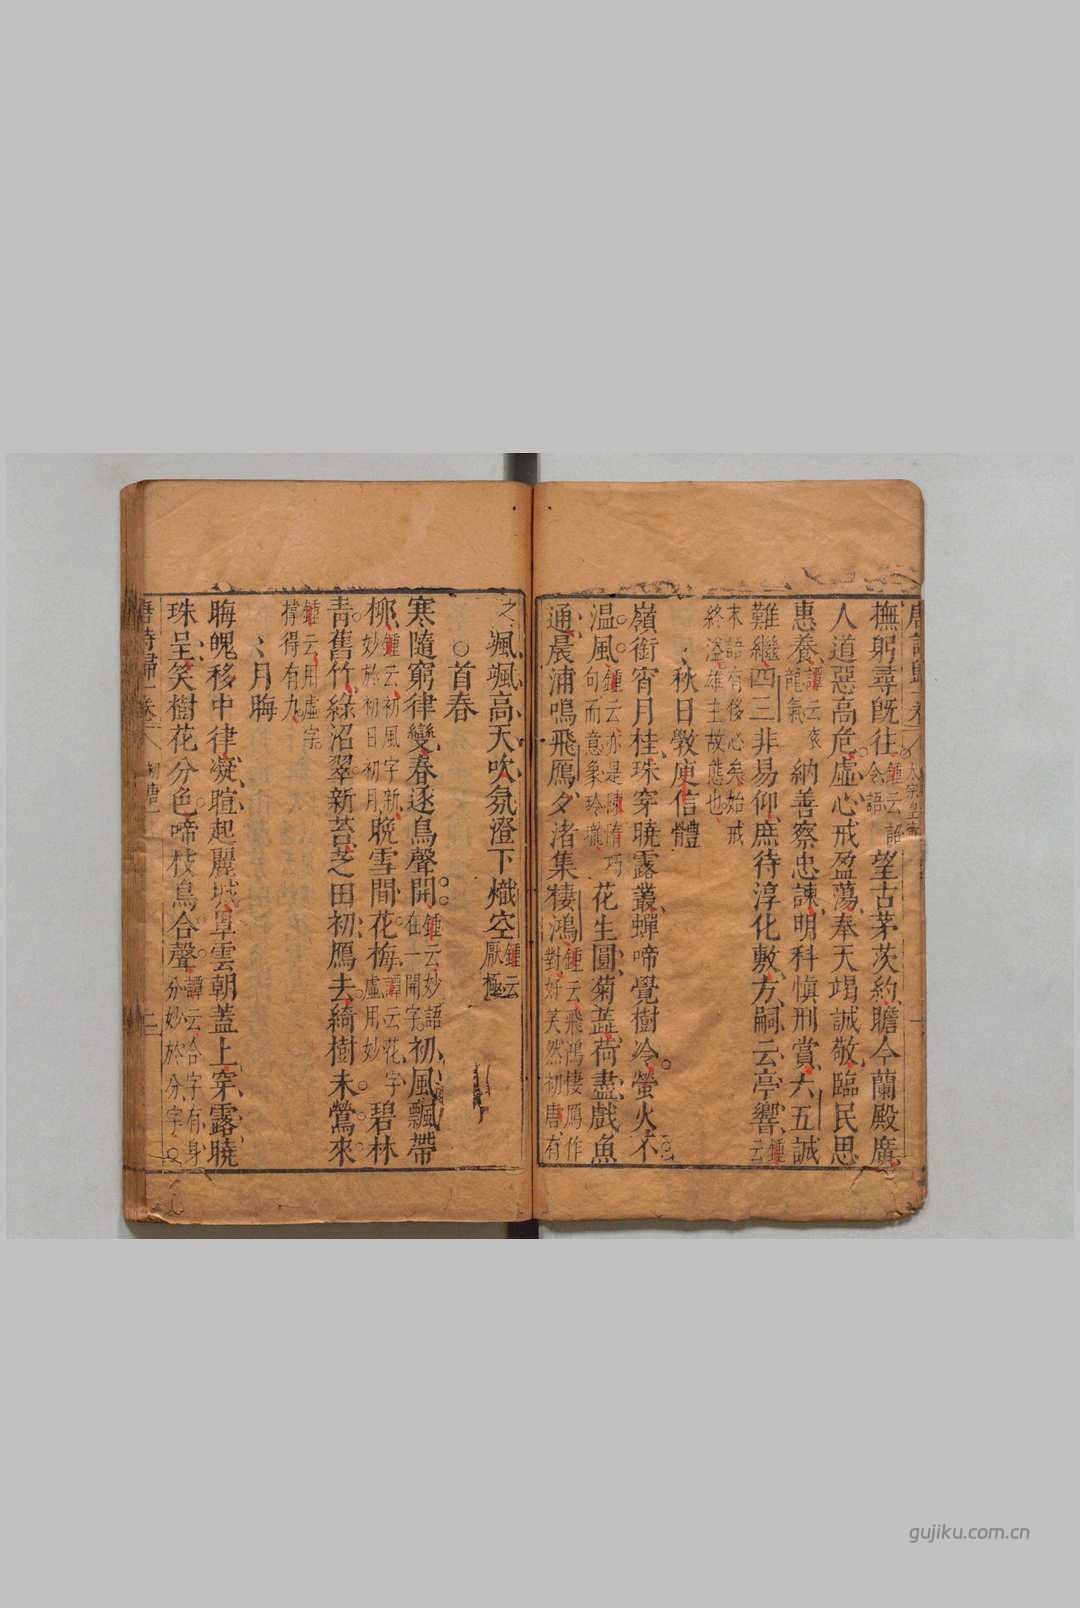 唐詩歸 卷一 太宗皇帝 一
撫躬尋既往鍾云詔令語望古茅茨約瞻今蘭殿廣
人道惡高危虛心戒盈蕩奉天竭誠敬臨民思
惠養譚云袞龍氣納善察忠諫明科慎刑賞六五誠
難繼四三非易仰庶待淳化敷方嗣云亭響鍾云
末語有侈心矣始戒終溢雄主故態也
秋日斆庾信體
嶺銜宵月桂珠穿曉露叢蟬啼覺樹冷螢火不
温風鍾云亦是陳隋巧句而意象玲瓏花生圓菊蘂荷盡戲魚
通晨浦鳴飛鴈夕渚集棲鴻鍾云飛鴻棲鴈作對好笑然初唐有
之颯颯高天吹氛澄下熾空鍾云厭極
○首春
寒隨窮律變春逐鳥聲開鍾云妙語在一開字初風飄帶
柳鍾云初風字新妙於初日初月晚雪間花梅譚云花字虛用妙碧林
青舊竹綠沼翠新苔芝田初鴈去綺樹未鶯來
鍾云用虛字撐得有九
月晦
晦魄移中律凝暄起麗城罩雲朝蓋上穿露曉
珠呈笑樹花分色啼枝鳥合聲譚云合字有身分妙於分字
唐詩歸 卷一 初唐一 二
gujiku.com.cn